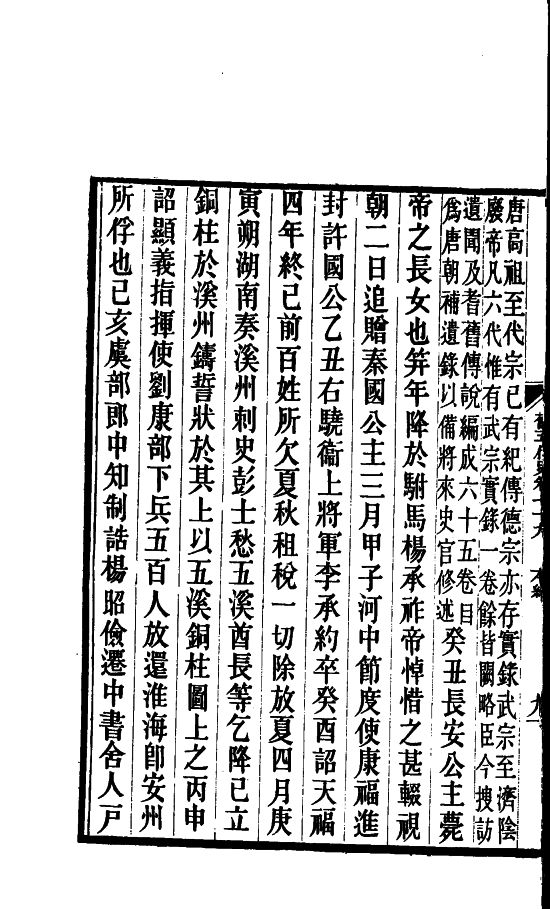 唐高祖至代宗已有紀傳德宗亦存實錄武宗至濟陰
廢帝凡六代惟有武宗實錄一卷餘皆闕略臣今搜訪
遺聞及耆舊傳說編成六十五卷目
爲唐朝補遺錄以備將來史官修述
癸丑長安公主薨
帝之長女也笄年降於駙馬楊承祚帝悼惜之甚輟視
朝二日追贈秦國公主三月甲子河中節度使康福進
封許國公乙丑右驍衞上將軍李承約卒癸酉詔天福
四年終已前百姓所欠夏秋租稅一切除放夏四月庚
寅朔湖南奏溪州刺史彭士愁五溪酋長等乞降已立
銅柱於溪州鑄誓狀於其上以五溪銅柱圖上之丙申
詔顯義指揮使劉康部下兵五百人放還淮海卽安州
所俘也己亥虞部郎中知制誥楊昭儉遷中書舍人戸